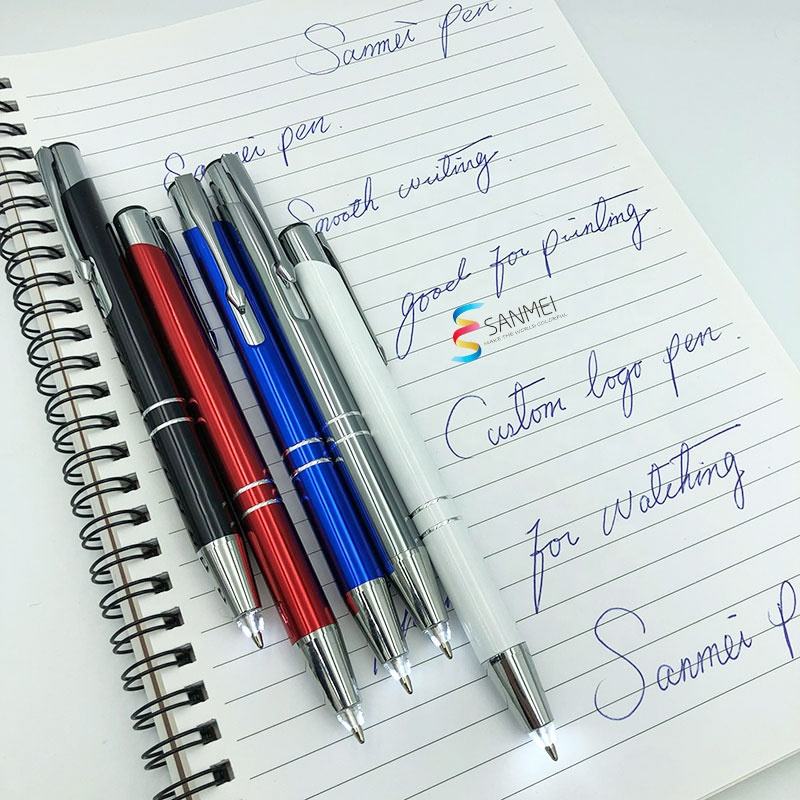 Sanmei pen.
Sanmei pen.
Smooth writing.
good for printing.
SANMEI
MAKE THE WORLD COLORFUL
Custom logo pen.
for watching
Sanmei p